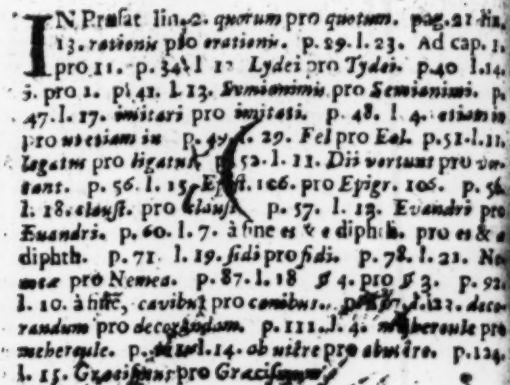 IN Præfat lin. 2. quorum pro quotum. pag. 21 lin.
13. rationis pro orationis. p. 29. l. 23. Ad cap. 1.
pro 11. p. 34. l 12 Lydei pro Tydei. p 40 l. 14.
3. pro 1. p. 41. l. 13. Semianimis pro Semianimi. p.
47. l. 17. imitari pro imitati. p. 48. l. 4. etiam in
pro ut etiam in p. 49. l. 29. Fel pro Eal. p. 51. l. 11.
legatus pro ligatus p. 52. l. 11. Dii vertunt pro ver-
tant. p. 56. l. 15. Epist. 106. pro Epigr. 106. p. 56.
l. 18. claust. pro p. 57. l. 13. Evandri pro
Euandri. p. 60. l. 7. à fine es & e diphth. pro es & a
diphth. p. 71. l. 19. sidi pro fidi. p. 78. l. 21. Ne-
meæ pro Nemea. p. 87. l. 18 § 4. pro § 3. p. 92.
l. 10. à fine, cavibus pro canibus. l. 22. deco-
randum pro decorandam. p. 111. l. 4. mehercule pro
mehercule. p. l. 14. ob pro p. 124.
l. 15. pro